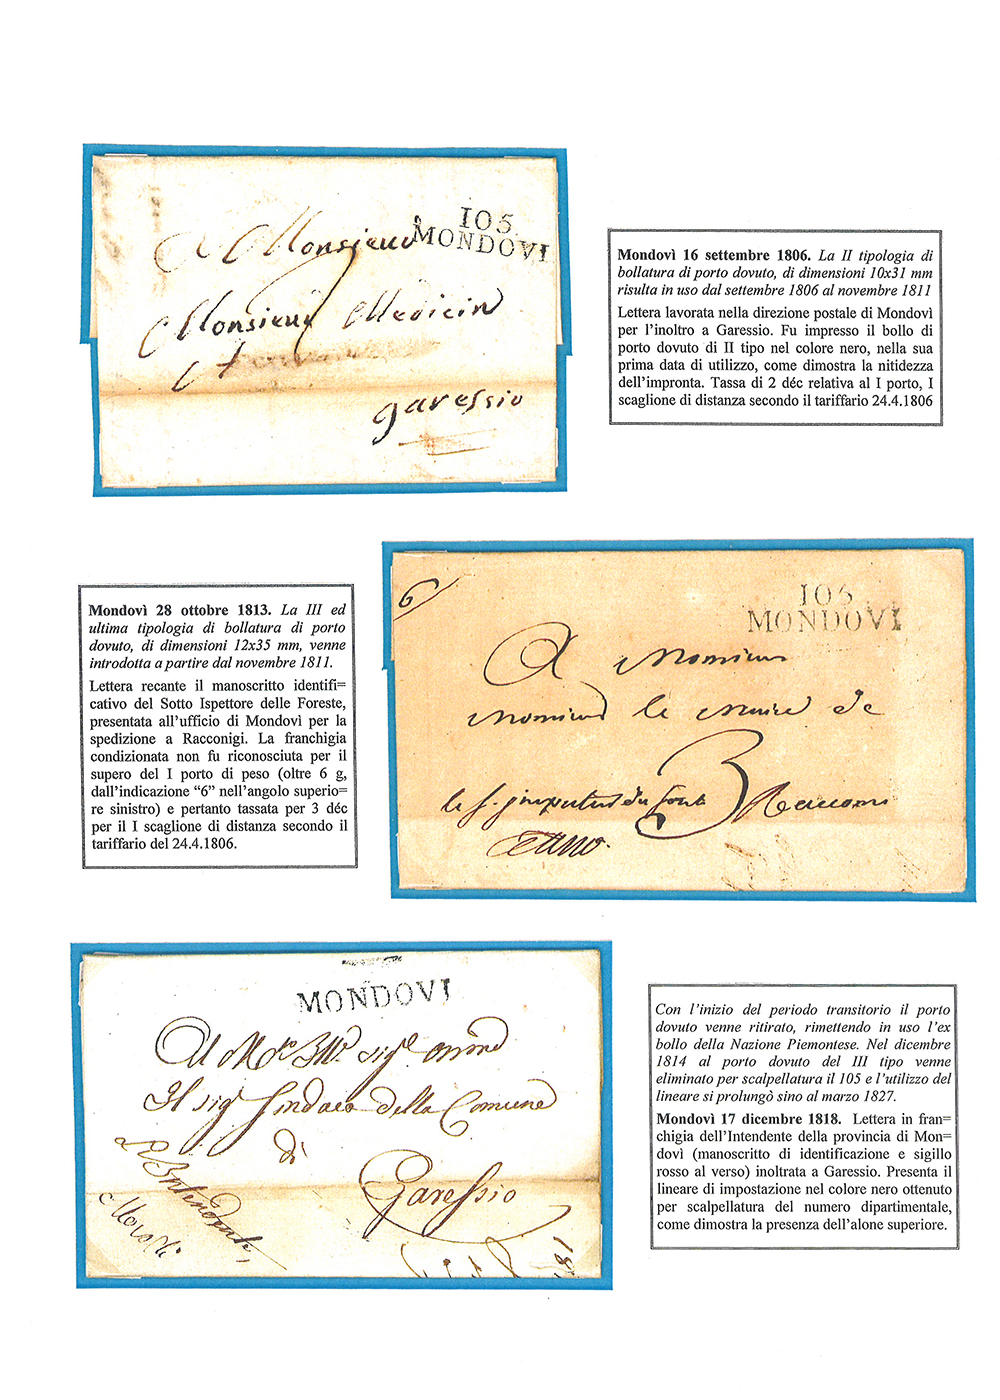 105
MONDOVI
A Monsieur
Monsieur Medicin
garessio
Mondovì 16 settembre 1806. La II tipologia di
bollatura di porto dovuto, di dimensioni 10x31 mm
risulta in uso dal settembre 1806 al novembre 1811
Lettera lavorata nella direzione postale di Mondovì
per l'inoltro a Garessio. Fu impresso il bollo di
porto dovuto di II tipo nel colore nero, nella sua
prima data di utilizzo, come dimostra la nitidezza
dell'impronta. Tassa di 2 déc relativa al I porto, I
scaglione di distanza secondo il tariffario 24.4.1806
Mondovì 28 ottobre 1813. La III ed
ultima tipologia di bollatura di porto
dovuto, di dimensioni 12x35 mm, venne
introdotta a partire dal novembre 1811.
Lettera recante il manoscritto identifi=
cativo del Sotto Ispettore delle Foreste,
presentata all'ufficio di Mondovì per la
spedizione a Racconigi. La franchigia
condizionata non fu riconosciuta per il
supero del I porto di peso (oltre 6 g,
dall'indicazione "6" nell'angolo superio=
re sinistro) e pertanto tassata per 3 déc
per il I scaglione di distanza secondo il
tariffario del 24.4.1806.
6
105
MONDOVI
A Monsieur
Monsieur le Maire de
3
MONDOVI
Il sig. Sindaco della Comune
di
Garessio
Con l'inizio del periodo transitorio il porto
dovuto venne ritirato, rimettendo in uso l'ex
bollo della Nazione Piemontese. Nel dicembre
1814 al porto dovuto del III tipo venne
eliminato per scalpellatura il 105 e l'utilizzo del
lineare si prolungò sino al marzo 1827.
Mondovì 17 dicembre 1818. Lettera in fran=
chigia dell'Intendente della provincia di Mon=
dovì (manoscritto di identificazione e sigillo
rosso al verso) inoltrata a Garessio. Presenta il
lineare di impostazione nel colore nero ottenuto
per scalpellatura del numero dipartimentale,
come dimostra la presenza dell'alone superiore.